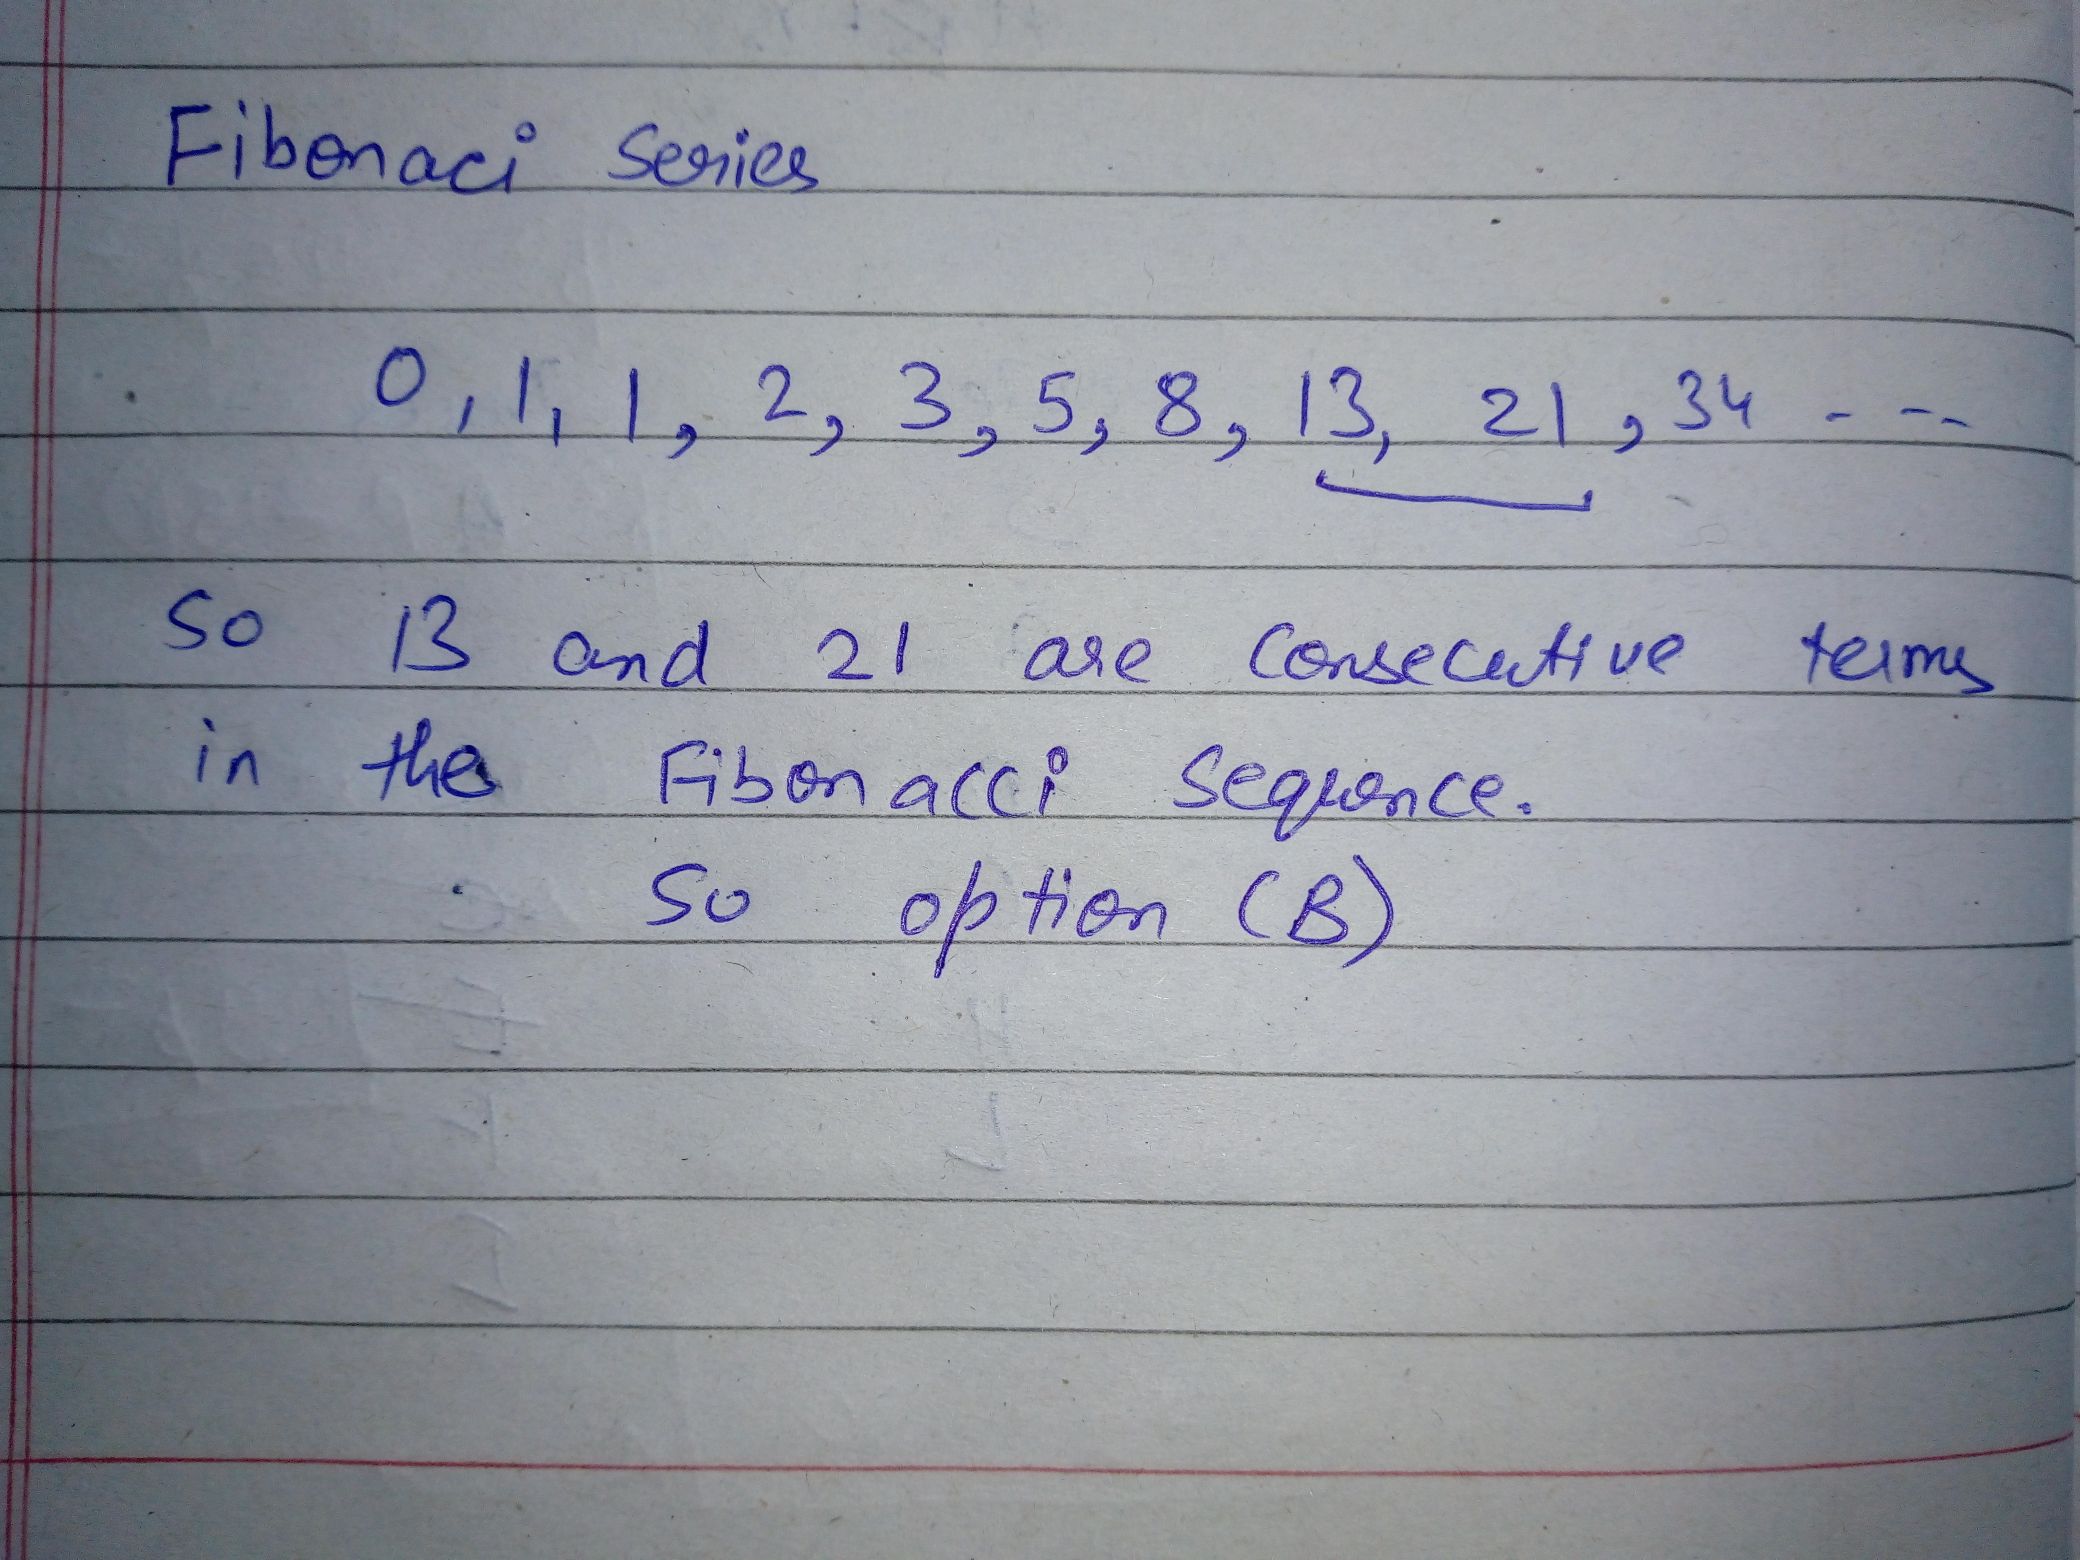 Fibonaci Series
0, 1, 1, 2, 3, 5, 8, 13, 21, 34 - - -
So 13 and 21 are Consecutive terms
in the Fibonacci Sequence.
So option (B)